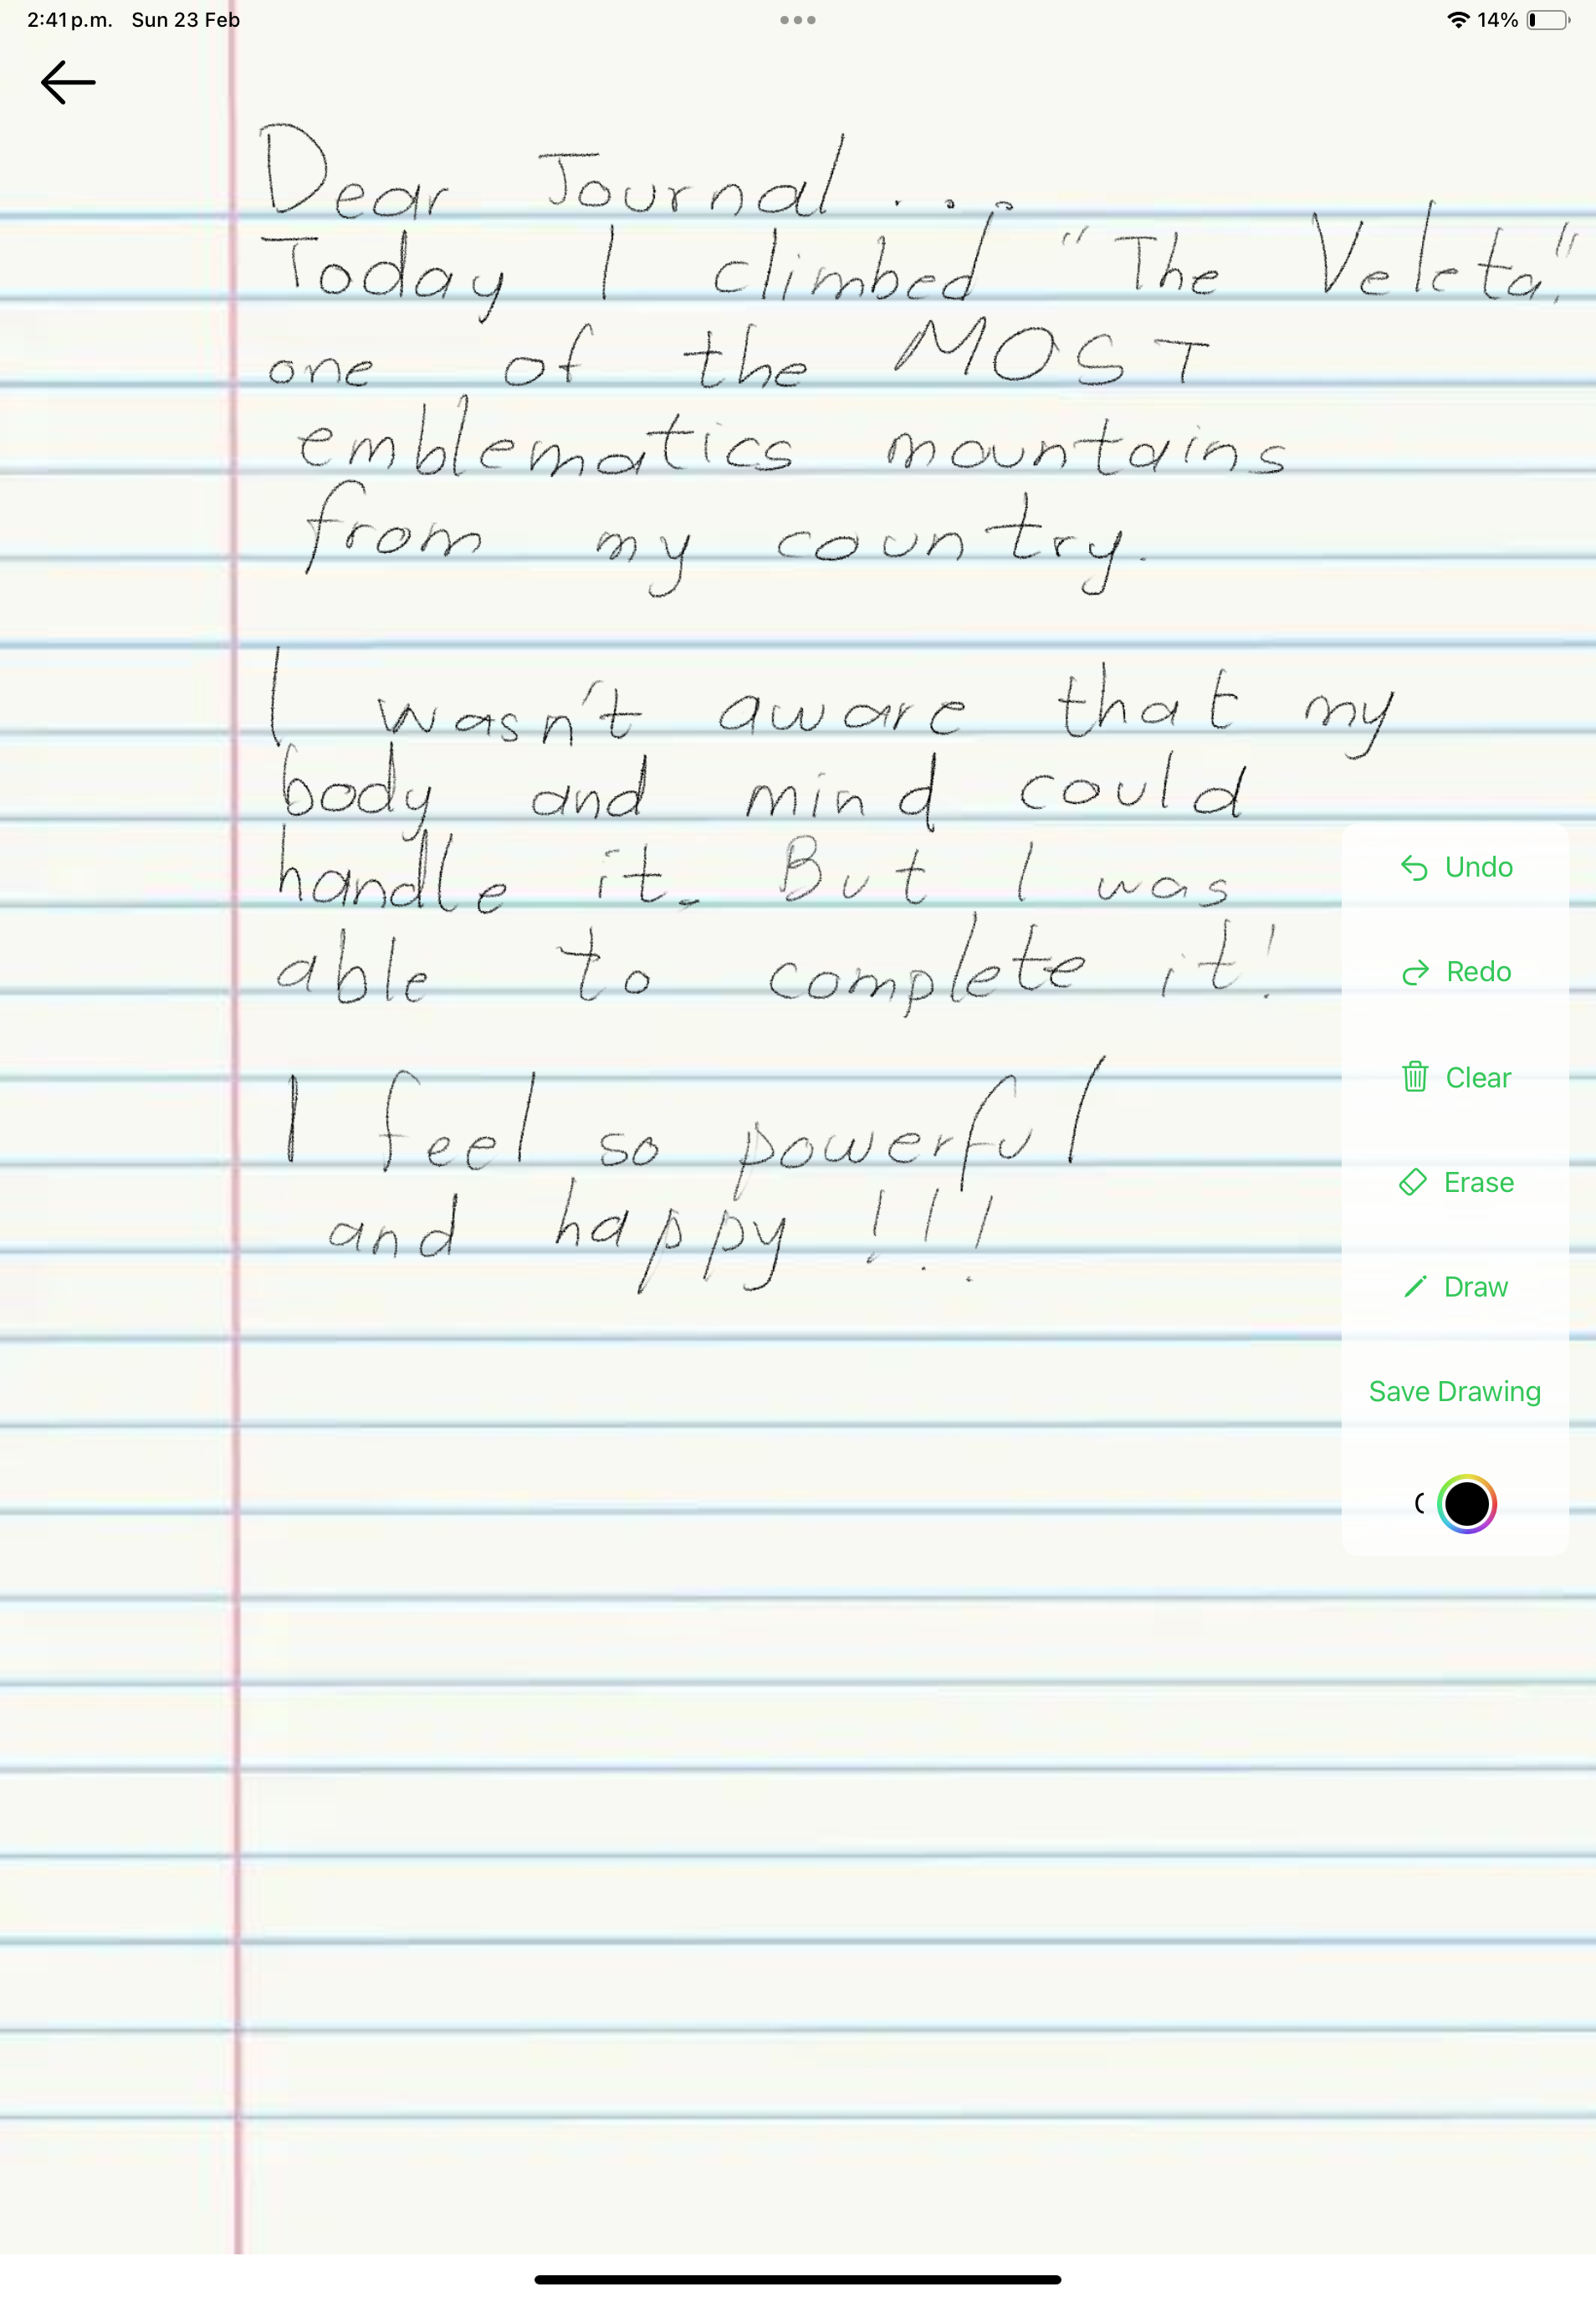 2:41 p.m. Sun 23 Feb
14%
Dear Journal...
Today I climbed "The Veleta,"
one of the MOST
emblematics mountains
from my country.
I wasn't aware that my
body and mind could
handle it. But I was
able to complete it!
I feel so powerful
and happy!!!
Undo
Redo
Clear
Erase
Draw
Save Drawing